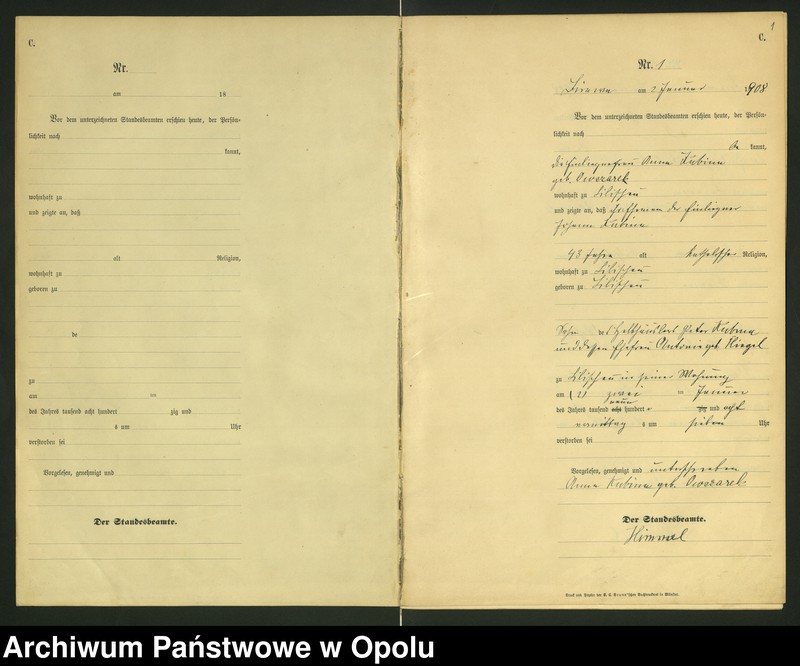 C.
Nr.
am 18
Vor dem unterzeichneten Standesbeamten erschien heute, der Persön-
lichkeit nach
kannt,
wohnhaft zu
und zeigte an, daß
alt Religion,
wohnhaft zu
geboren zu
de
zu
am ten
des Jahres tausend acht hundert zig und
s um Uhr
verstorben sei
Vorgelesen, genehmigt und
Der Standesbeamte.
1
C.
Nr. 1
am 2 Januar 1908
Vor dem unterzeichneten Standesbeamten erschien heute, der Persön-
lichkeit nach
be kannt,
die Einliegerfrau Anna Kubina
geb. Owczarek
wohnhaft zu
und zeigte an, daß ihr Ehemann der Einlieger
Johann Kubina
48 Jahre alt katholischer Religion,
wohnhaft zu
geboren zu
Sohn des Halbhäuslers Peter Kubina
und dessen Ehefrau Antonie geb.
zu in seiner Wohnung
am (2) zwei ten Januar
neun
des Jahres tausend acht hundert zig und acht
vormittag s um sieben Uhr
verstorben sei
Vorgelesen, genehmigt und unterschrieben
Anna Kubina geb. Owczarek
Der Standesbeamte.
Himmel
Archiwum Państwowe w Opolu